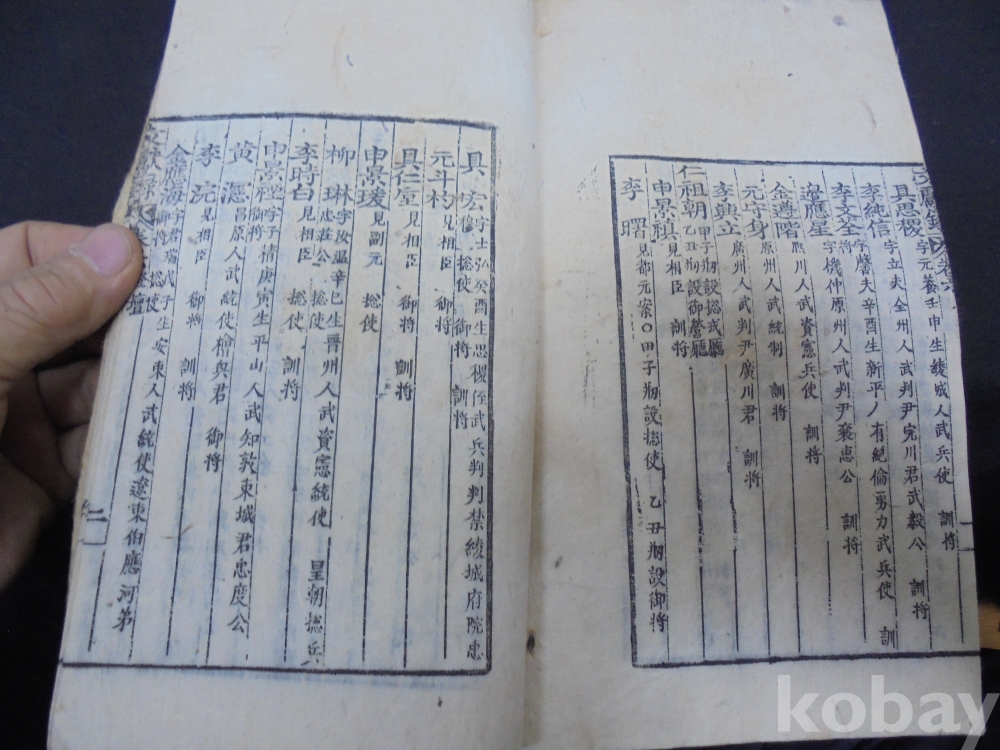 文獻錄 卷六
具思稷 字元養壬申生綾城人武兵使 訓將
李純信 字立夫全州人武判尹完川君武毅公 訓將
李文全 字馨夫辛酉生新平人有絶倫勇力武兵使 訓將
邊應星 字機仲原州人武判尹襄惠公 訓將
金遵階 熙川人武資憲兵使 訓將
元守身 原州人武統制 訓將
李興立 廣州人武判尹廣川君 訓將
仁祖朝 甲子刱設摠戎廳 乙丑刱設御營廳
申景禛 見相臣 訓將
李曙 見都元案〇甲子刱設摠使 乙丑刱設御將
具宏 字士弘癸酉生思稷侄武兵判判禁綾城府院忠穆 摠使 御將 訓將
元斗杓 見相臣 摠使 御將
具仁垕 見相臣 御將 訓將
申景瑗 見副元 摠使
柳琳 字汝溫辛巳生晋州人武資憲統使 皇朝摠兵 忠莊公 摠使
李時白 見相臣 摠使 訓將
申景禋 字子精庚寅生平山人武知敦東城君忠度公 御將
黃瀗 昌原人武統使檜興君 御將
李浣 見相臣 御將 訓將
金應海 字君瑞戊子生安東人武統使遼東伯應河弟 御將 摠使
文獻錄 卷
二